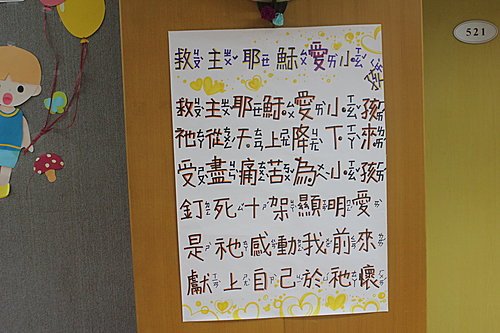 救主耶穌愛小孩
救主耶穌愛小孩
祂從天上降下來
受盡痛苦為小孩
釘死十架顯明愛
是祂感動我前來
獻上自己於祂懷
521